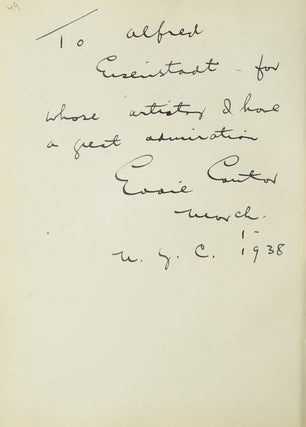 49
To Alfred
Eisenstadt - for
whose artistry I have
a great admiration
Eddie Cantor
March.
1-
N.Y.C. 1938